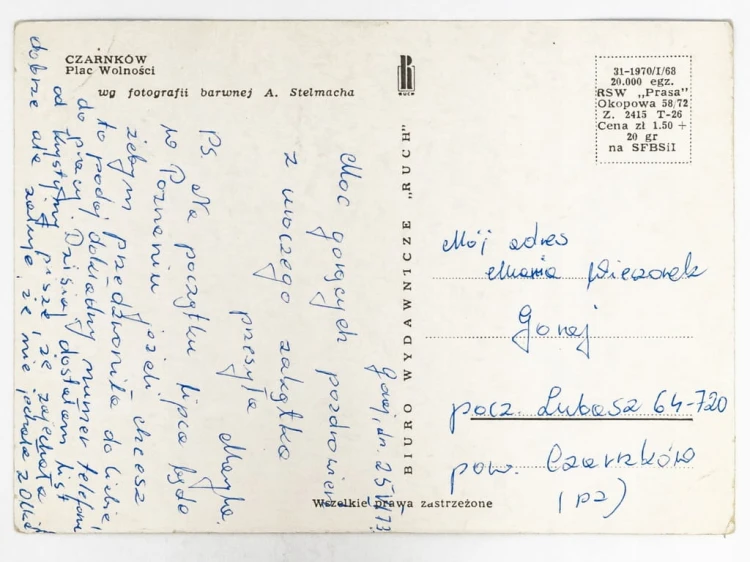 CZARNKÓW
Plac Wolności
wg fotografii barwnej A. Stelmacha
RUCH
31-1970/I/68
20.000 egz.
RSW „Prasa"
Okopowa 58/72
Z. 2415 T-26
Cena zł 1.50 +
20 gr
na SFBSiI
BIURO WYDAWNICZE „RUCH"
Goraj, dn. 25 VI 73
Moc gorących pozdrowień
z uroczego zakątka
przesyła Maryla.
PS. Na początku lipca będę
w Poznaniu jeżeli chcesz
żebym przedzwoniła do Ciebie,
to podaj dokładny numer telefonu
do pracy. Dzisiaj dostałam list
od Krystyny pisze, że zajechała
dobrze ale żałuje że nie jechała z
Mój adres
Maria Wieczorek
Goraj
pocz. Lubasz 64-720
pow. Czarnków
Wszelkie prawa zastrzeżone